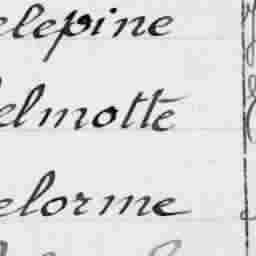 elepine
elmotte
elorme